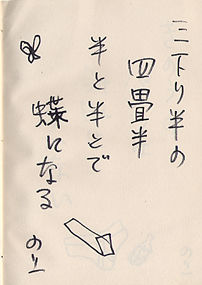 三下り半の
四畳半
半と半とで
蝶になる